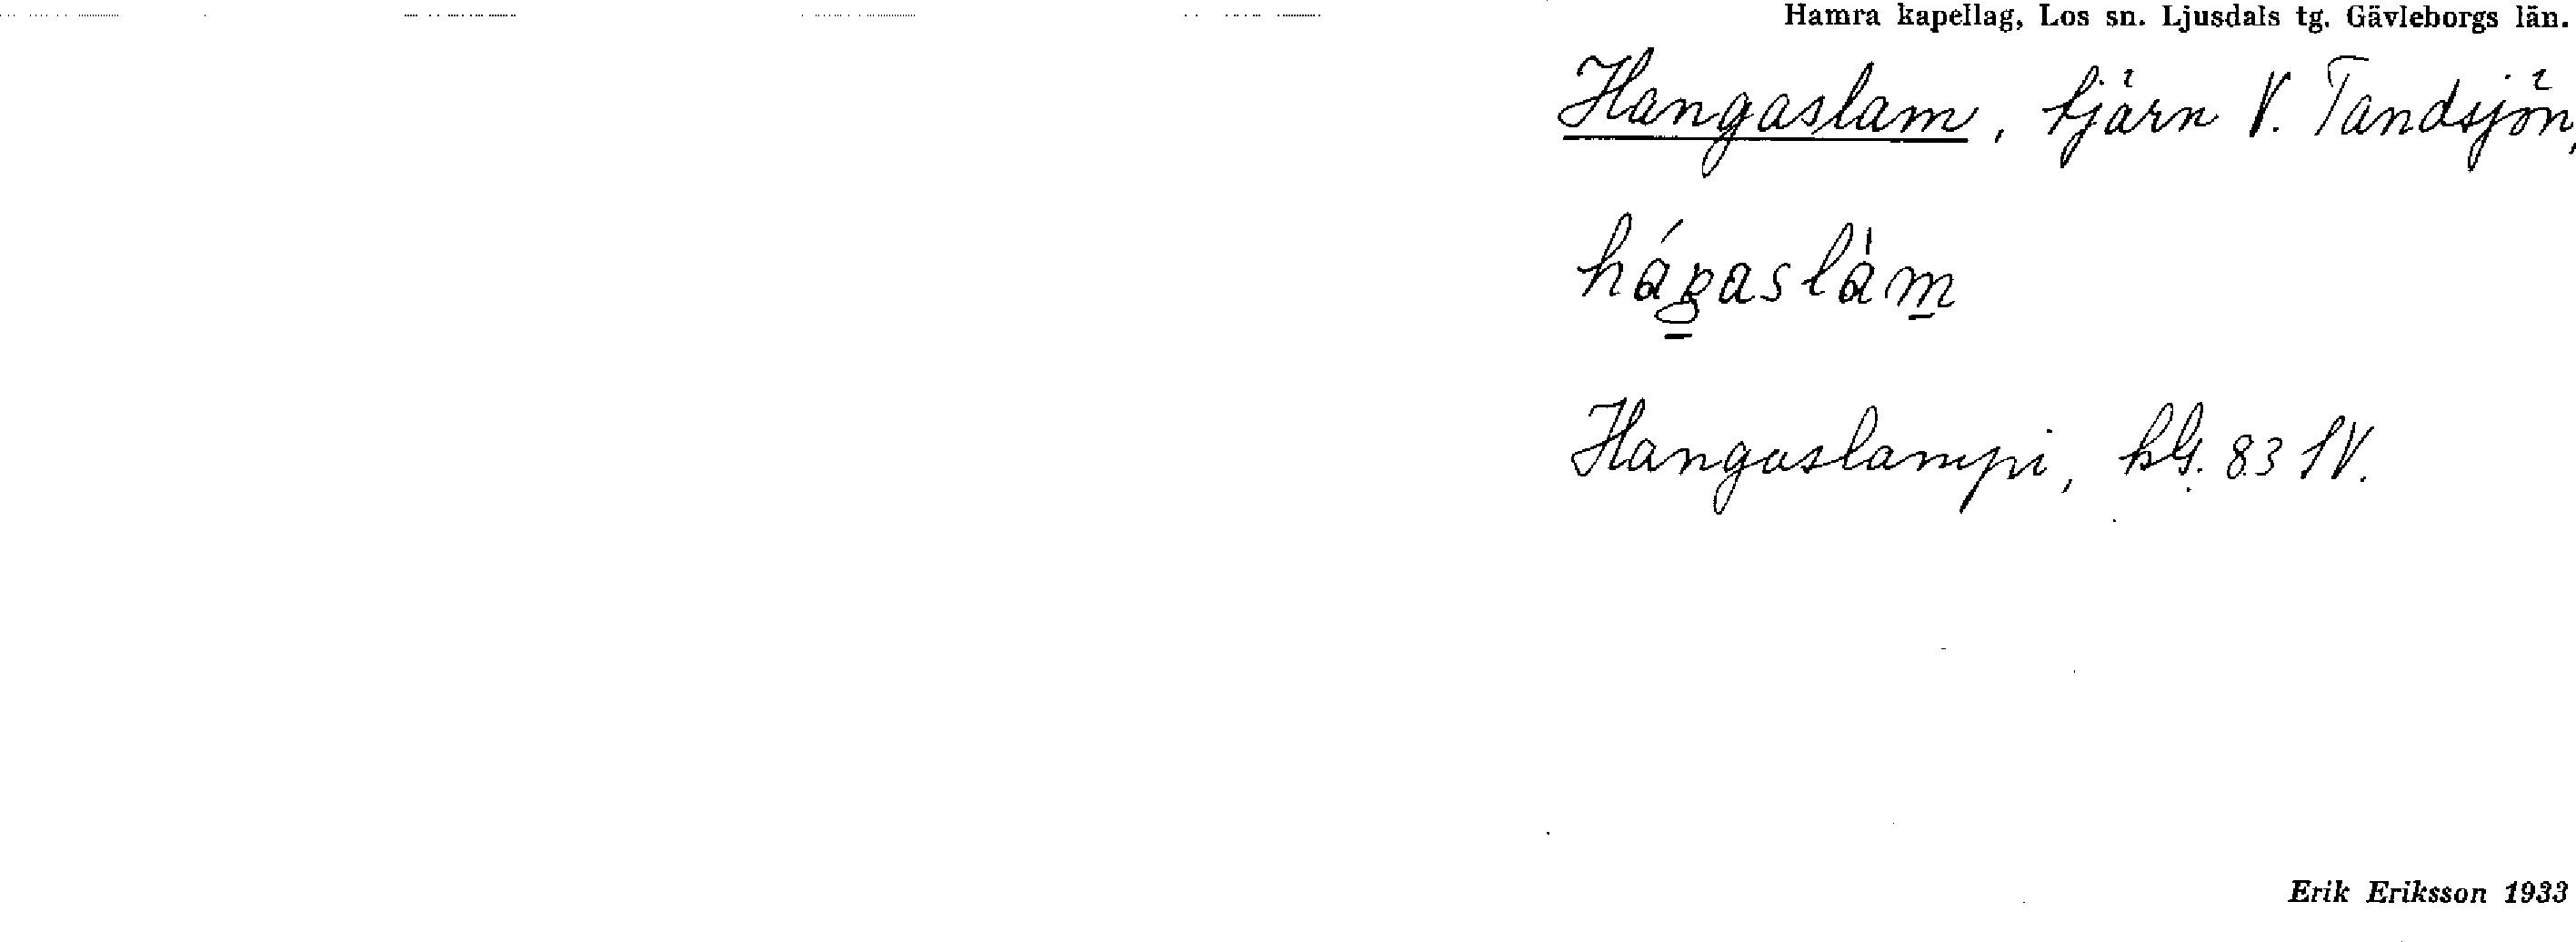 Hamra kapellag, Los sn. Ljusdals tg. Gävleborgs län.
Hangaslam, tjärn V. Tandsjön,
Hangaslampi, kbl. 83 SV.
Erik Eriksson 1933